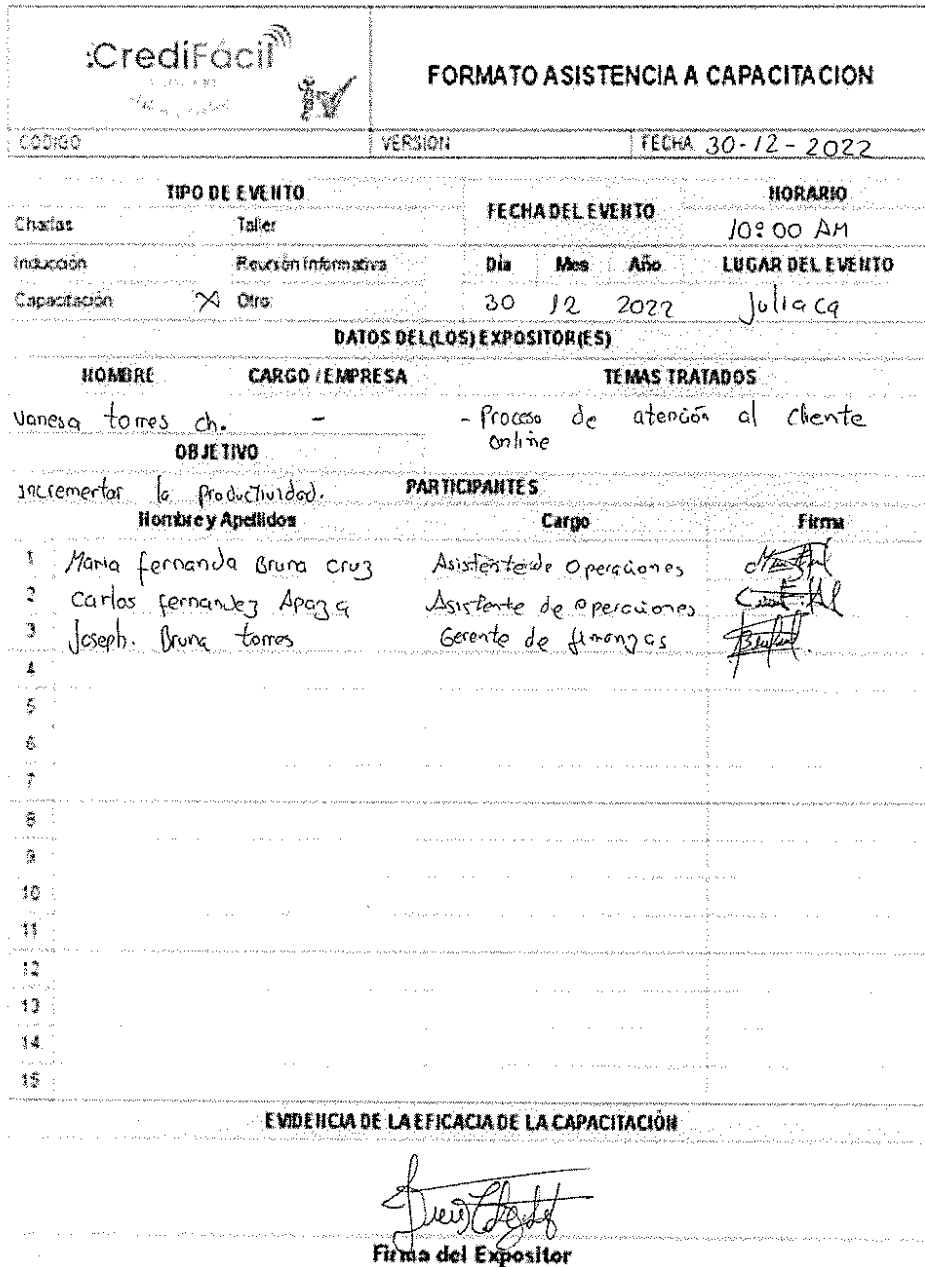 CrediFácil
FORMATO ASISTENCIA A CAPACITACION
CODIGO VERSION FECHA 30-12-2022
TIPO DE EVENTO FECHA DEL EVENTO HORARIO
Charlas Taller 10:00 AM
Inducción Reunión Informativa Día Mes Año LUGAR DEL EVENTO
Capacitación X Otro: 30 12 2022 Juliaca
DATOS DEL(LOS) EXPOSITOR(ES)
NOMBRE CARGO / EMPRESA TEMAS TRATADOS
Vanesa torres ch. - - Proceso de atención al cliente
online
OBJETIVO
incrementar la productividad. PARTICIPANTES
Nombre y Apellidos Cargo Firma
1 Maria fernanda Bruna cruz Asistente de Operaciones
2 Carlos fernandez Apaza Asistente de operaciones
3 Joseph. Bruna torres Gerente de finanzas
4
5
6
7
8
9
10
11
12
13
14
15
EVIDENCIA DE LA EFICACIA DE LA CAPACITACIÓN
Firma del Expositor